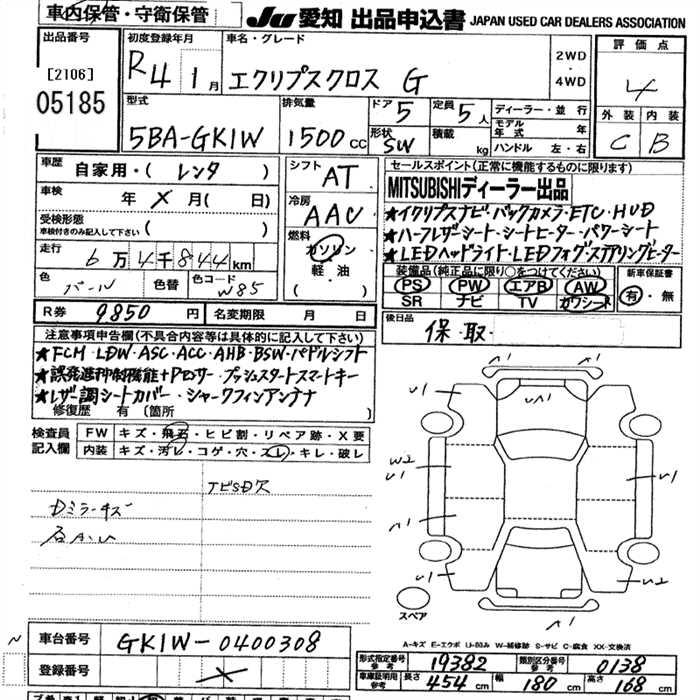 車内保管・守衛保管 JU 愛知 出品申込書 JAPAN USED CAR DEALERS ASSOCIATION
出品番号 初度登録年月 車名・グレード 評価点
[2106] R4年1月 エクリプスクロス G 2WD・4WD 4
05185 型式 排気量 ドア 5 定員 5人 ディーラー・並行 外装 内装
5BA-GK1W 1500cc 形状 SW 積載 kg モデル年式 年 ハンドル 左・右 C B
車歴 自家用・(レンタ) シフト AT セールスポイント(正常に機能するものに限ります)
車検 年 X 月( 日) 冷房 AAC MITSUBISHIディーラー出品
受検形態 車検付きのみ記入して下さい ( ) ★エクリプスナビ・バックカメラ・ETC・HUD
走行 6万4千844km 燃料 ガソリン 軽油 ( ) ★ハーフレザーシート・シートヒーター・パワーシート
★LEDヘッドライト・LEDフォグ・ステアリングヒーター
色 パール 色替 色コード W85 装備品(純正品に限り○をつけてください) 新車保証書
PS PW エアB AW 有・無
SR ナビ TV カワシート
R券 9850円 名変期限 月 日 後日品 保・取
注意事項申告欄(不具合内容等は具体的に記入して下さい)
★FCM・LDW・ASC・ACC・AHB・BSW・パドルシフト
★誤発進抑制機能+Pセンサー・プッシュスタートスマートキー
★レザー調シートカバー・シャークフィンアンテナ
修復歴 有 (箇所 )
検査員記入欄 FW キズ・飛石・ヒビ割・リペア跡・X要
内装 キズ・汚レ・コゲ・穴・スレ・キレ・破レ
Dミラーキズ
スペア
A-キズ E-エクボ U-凹み W-補修跡 S-サビ C-腐食 XX-交換済
車台番号 GK1W-0400308
登録番号 X
形式指定番号 参考 19382 類別区分番号 参考 0138
車庫証明用 参考 長さ 454cm 幅 180cm 高さ 168cm